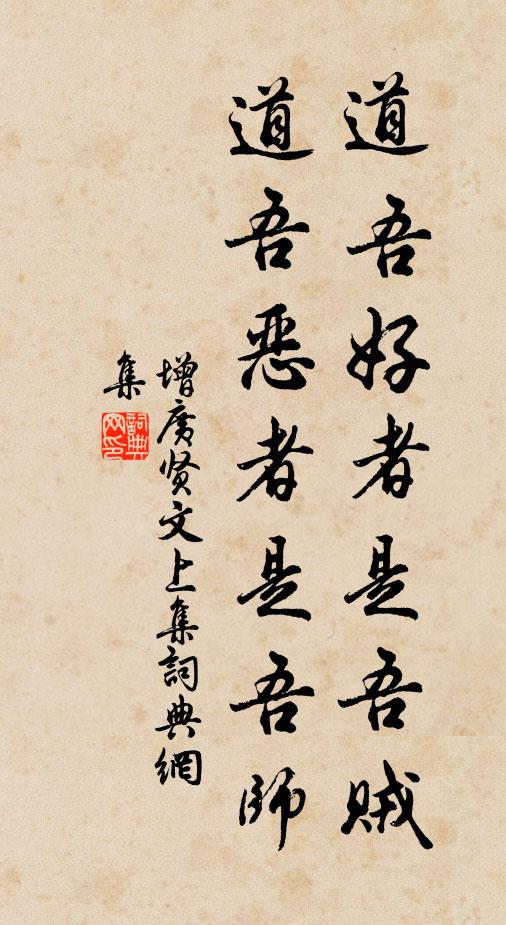 道吾好者是吾贼
道吾恶者是吾師
增广贤文上集詞典網
集
詞典
网印